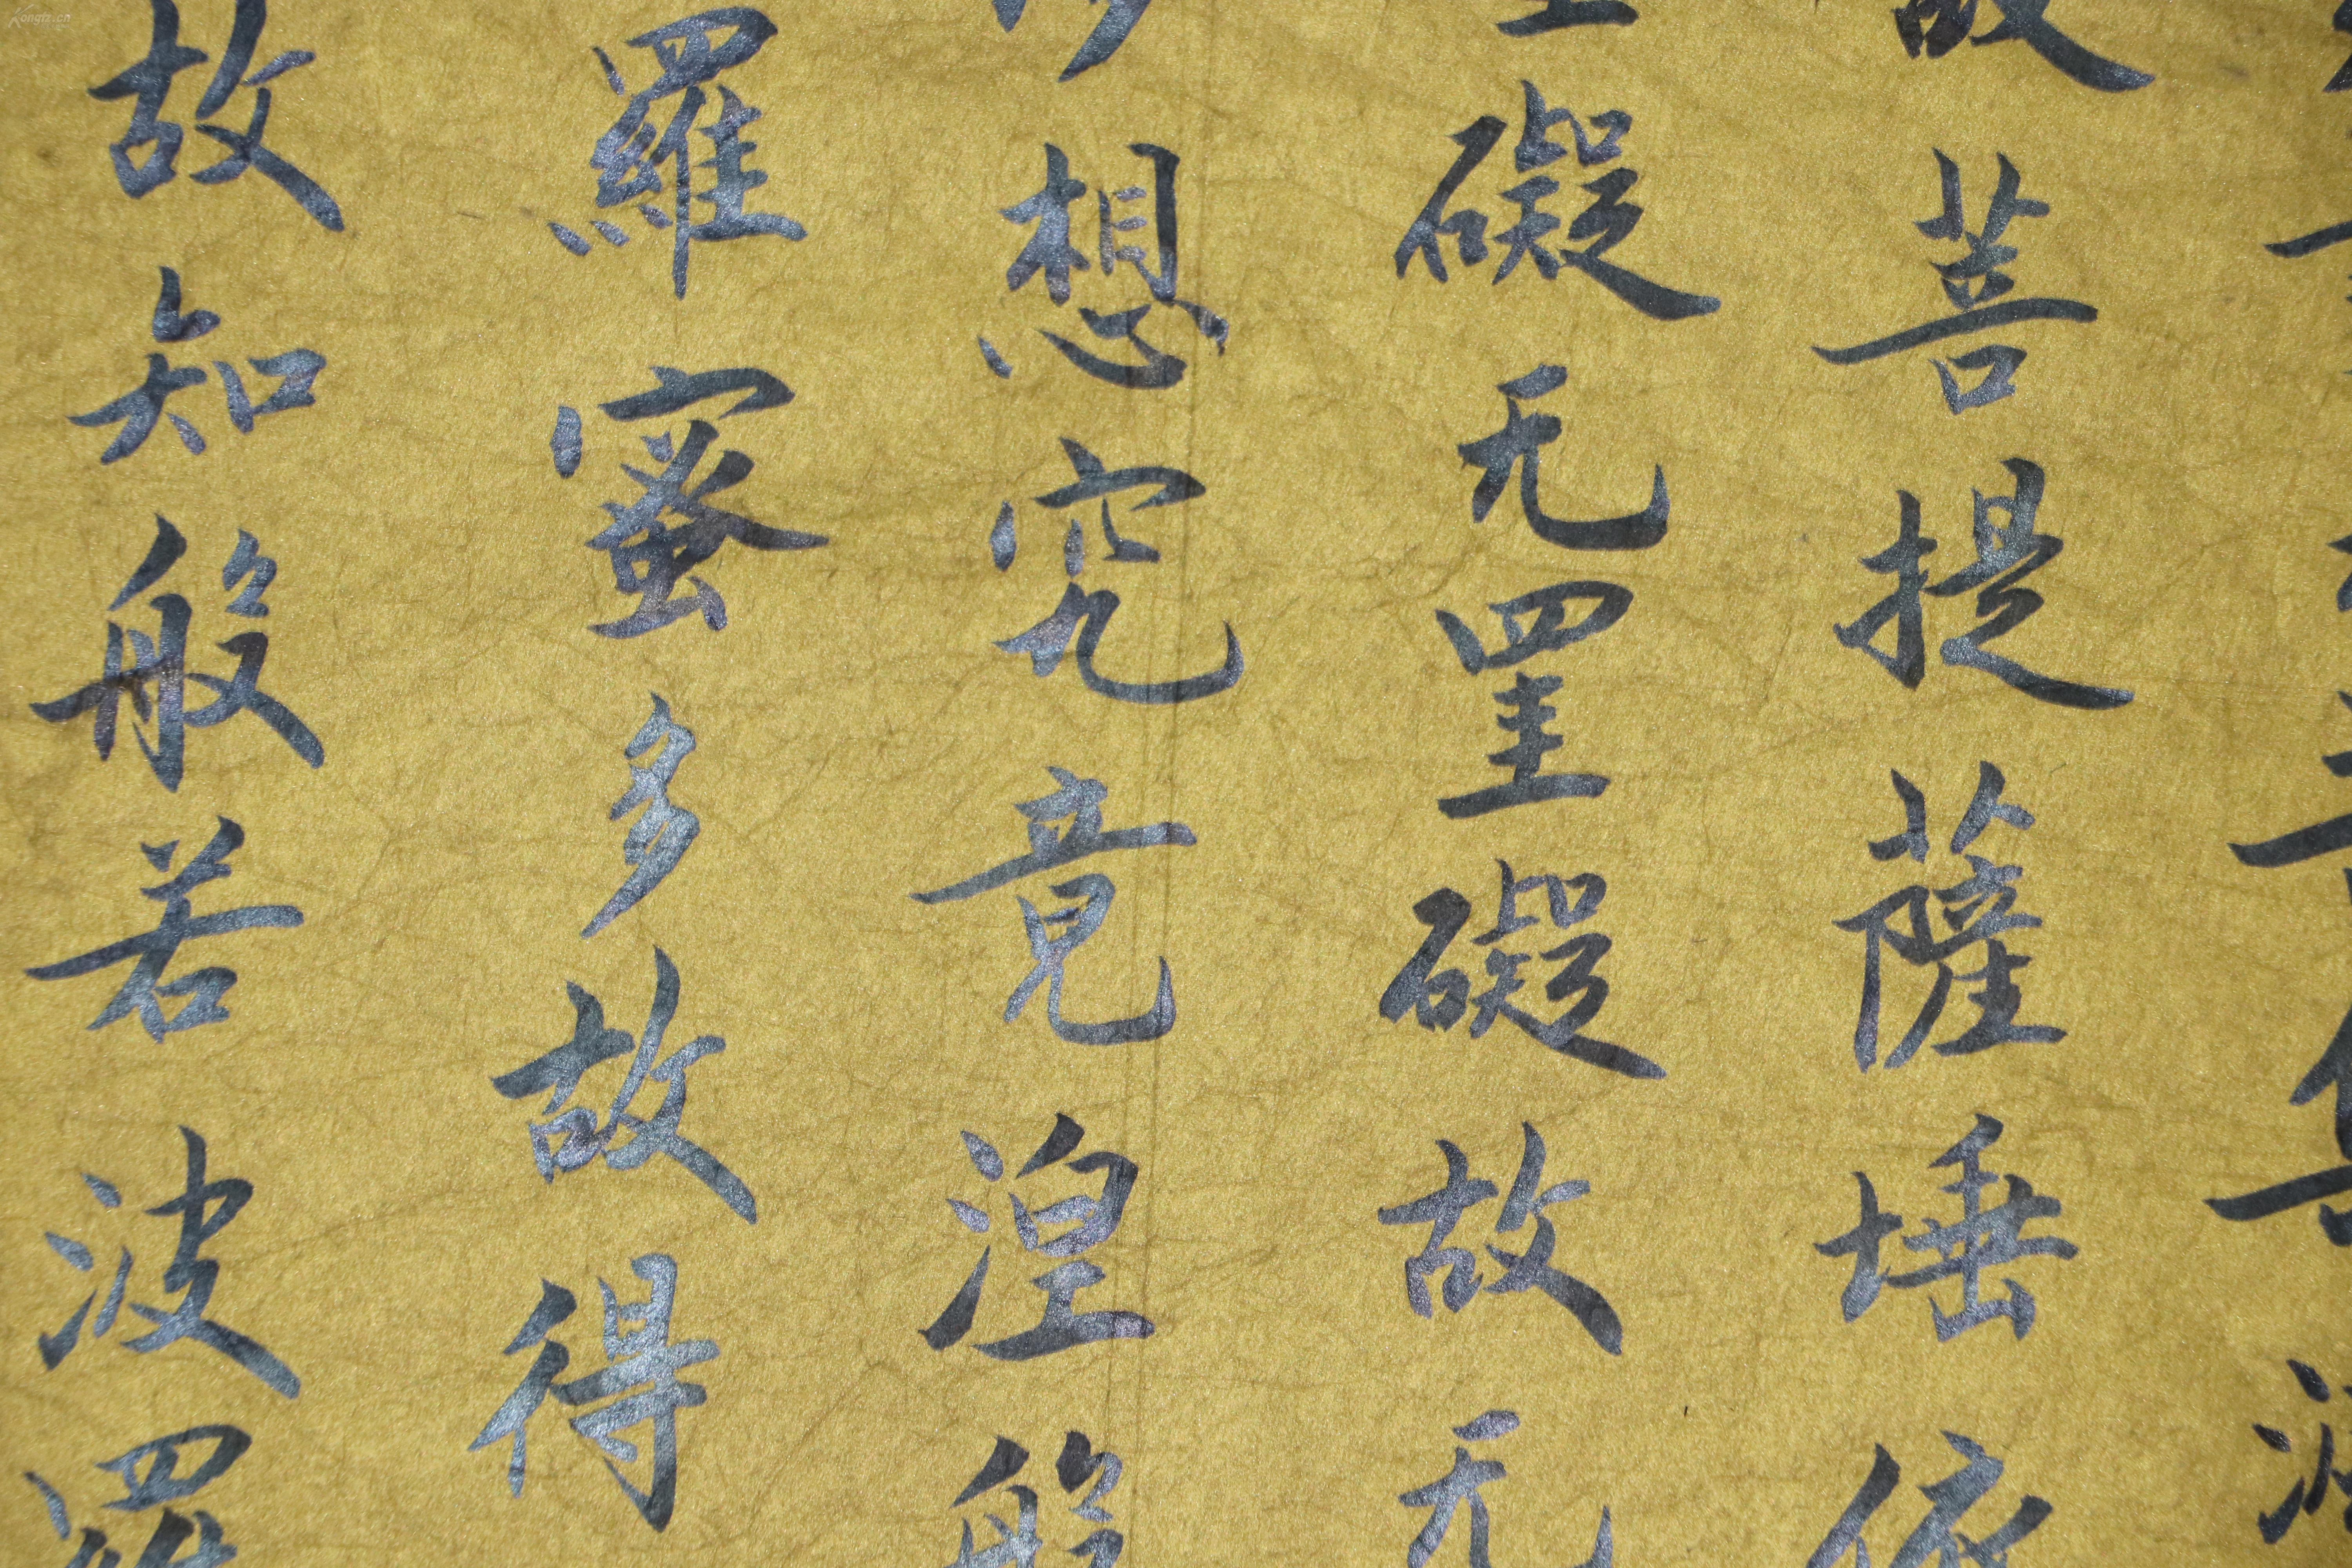 故菩提薩埵依
礙无罣礙故无
想究竟涅般
羅蜜多故得
故知般若波羅
Kongfz.cn